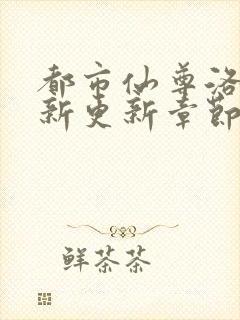 都市仙尊洛
新更新章節
鲜茶茶